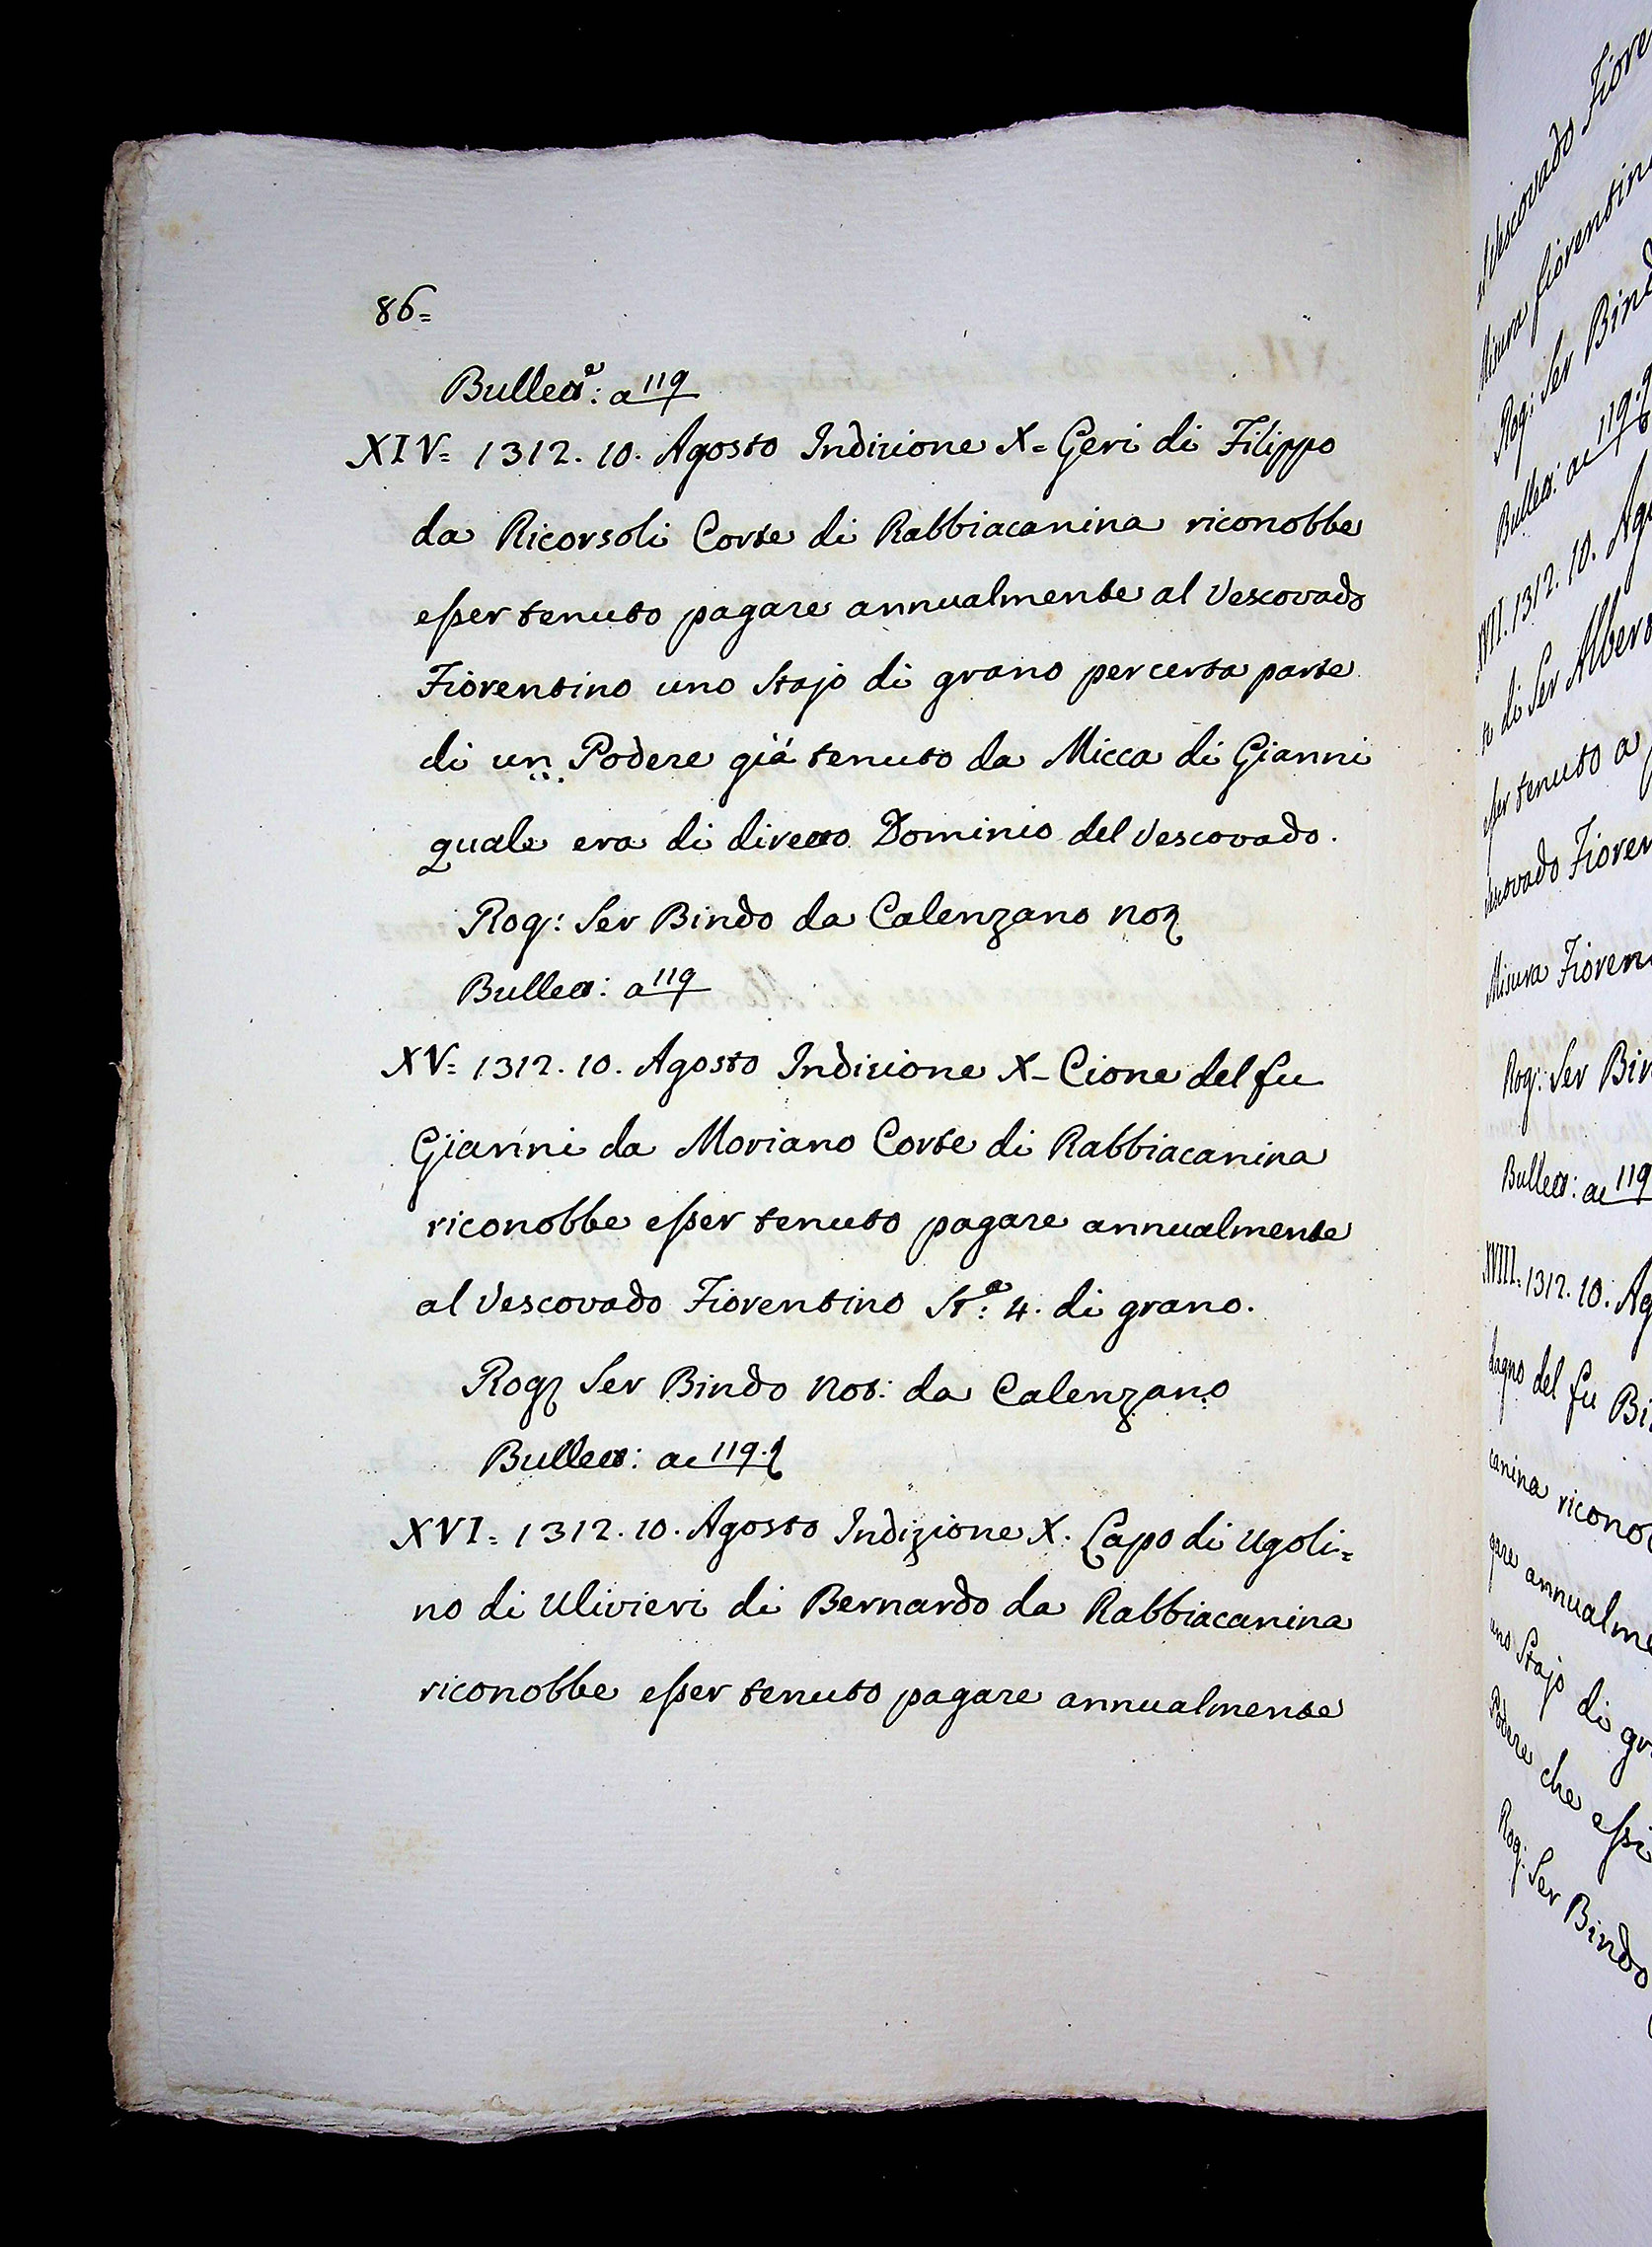 86=
Bullett.e: a 119
XIV= 1312. 10. Agosto Indizione X= Geri di Filippo
da Ricorsoli Corte di Rabbiacanina riconobbe
esser tenuto pagare annualmente al Vescovado
Fiorentino uno Stajo di grano per certa parte
di un Podere giá tenuto da Micca di Gianni
quale era di diretto Dominio del Vescovado.
Rog: Ser Bindo da Calenzano not
Bullett: a 119
XV= 1312. 10. Agosto Indizione X- Cione del fu
Gianni da Moriano Corte di Rabbiacanina
riconobbe esser tenuto pagare annualmente
al Vescovado Fiorentino St.a: 4. di grano.
Rog Ser Bindo Not: da Calenzano
Bullett: ac 119.
XVI= 1312. 10. Agosto Indizione X. Lapo di Ugoli=
no di Ulivieri di Bernardo da Rabbiacanina
riconobbe esser tenuto pagare annualmente
Vescovado
Misura fiorentin
Rog: Ser Bind
Bullett: ac 119.
XVII. 1312. 10. Ag
di Ser Alber
esser tenuto a
Fioren
Misura Fioren
Rog: Ser Bin
Bullett: ac 119
XVIII= 1312. 10. Ag
del fu Bi
canina ricono
gare annualme
uno Stajo di gr
Podere che essi
Rog: Ser Bindo